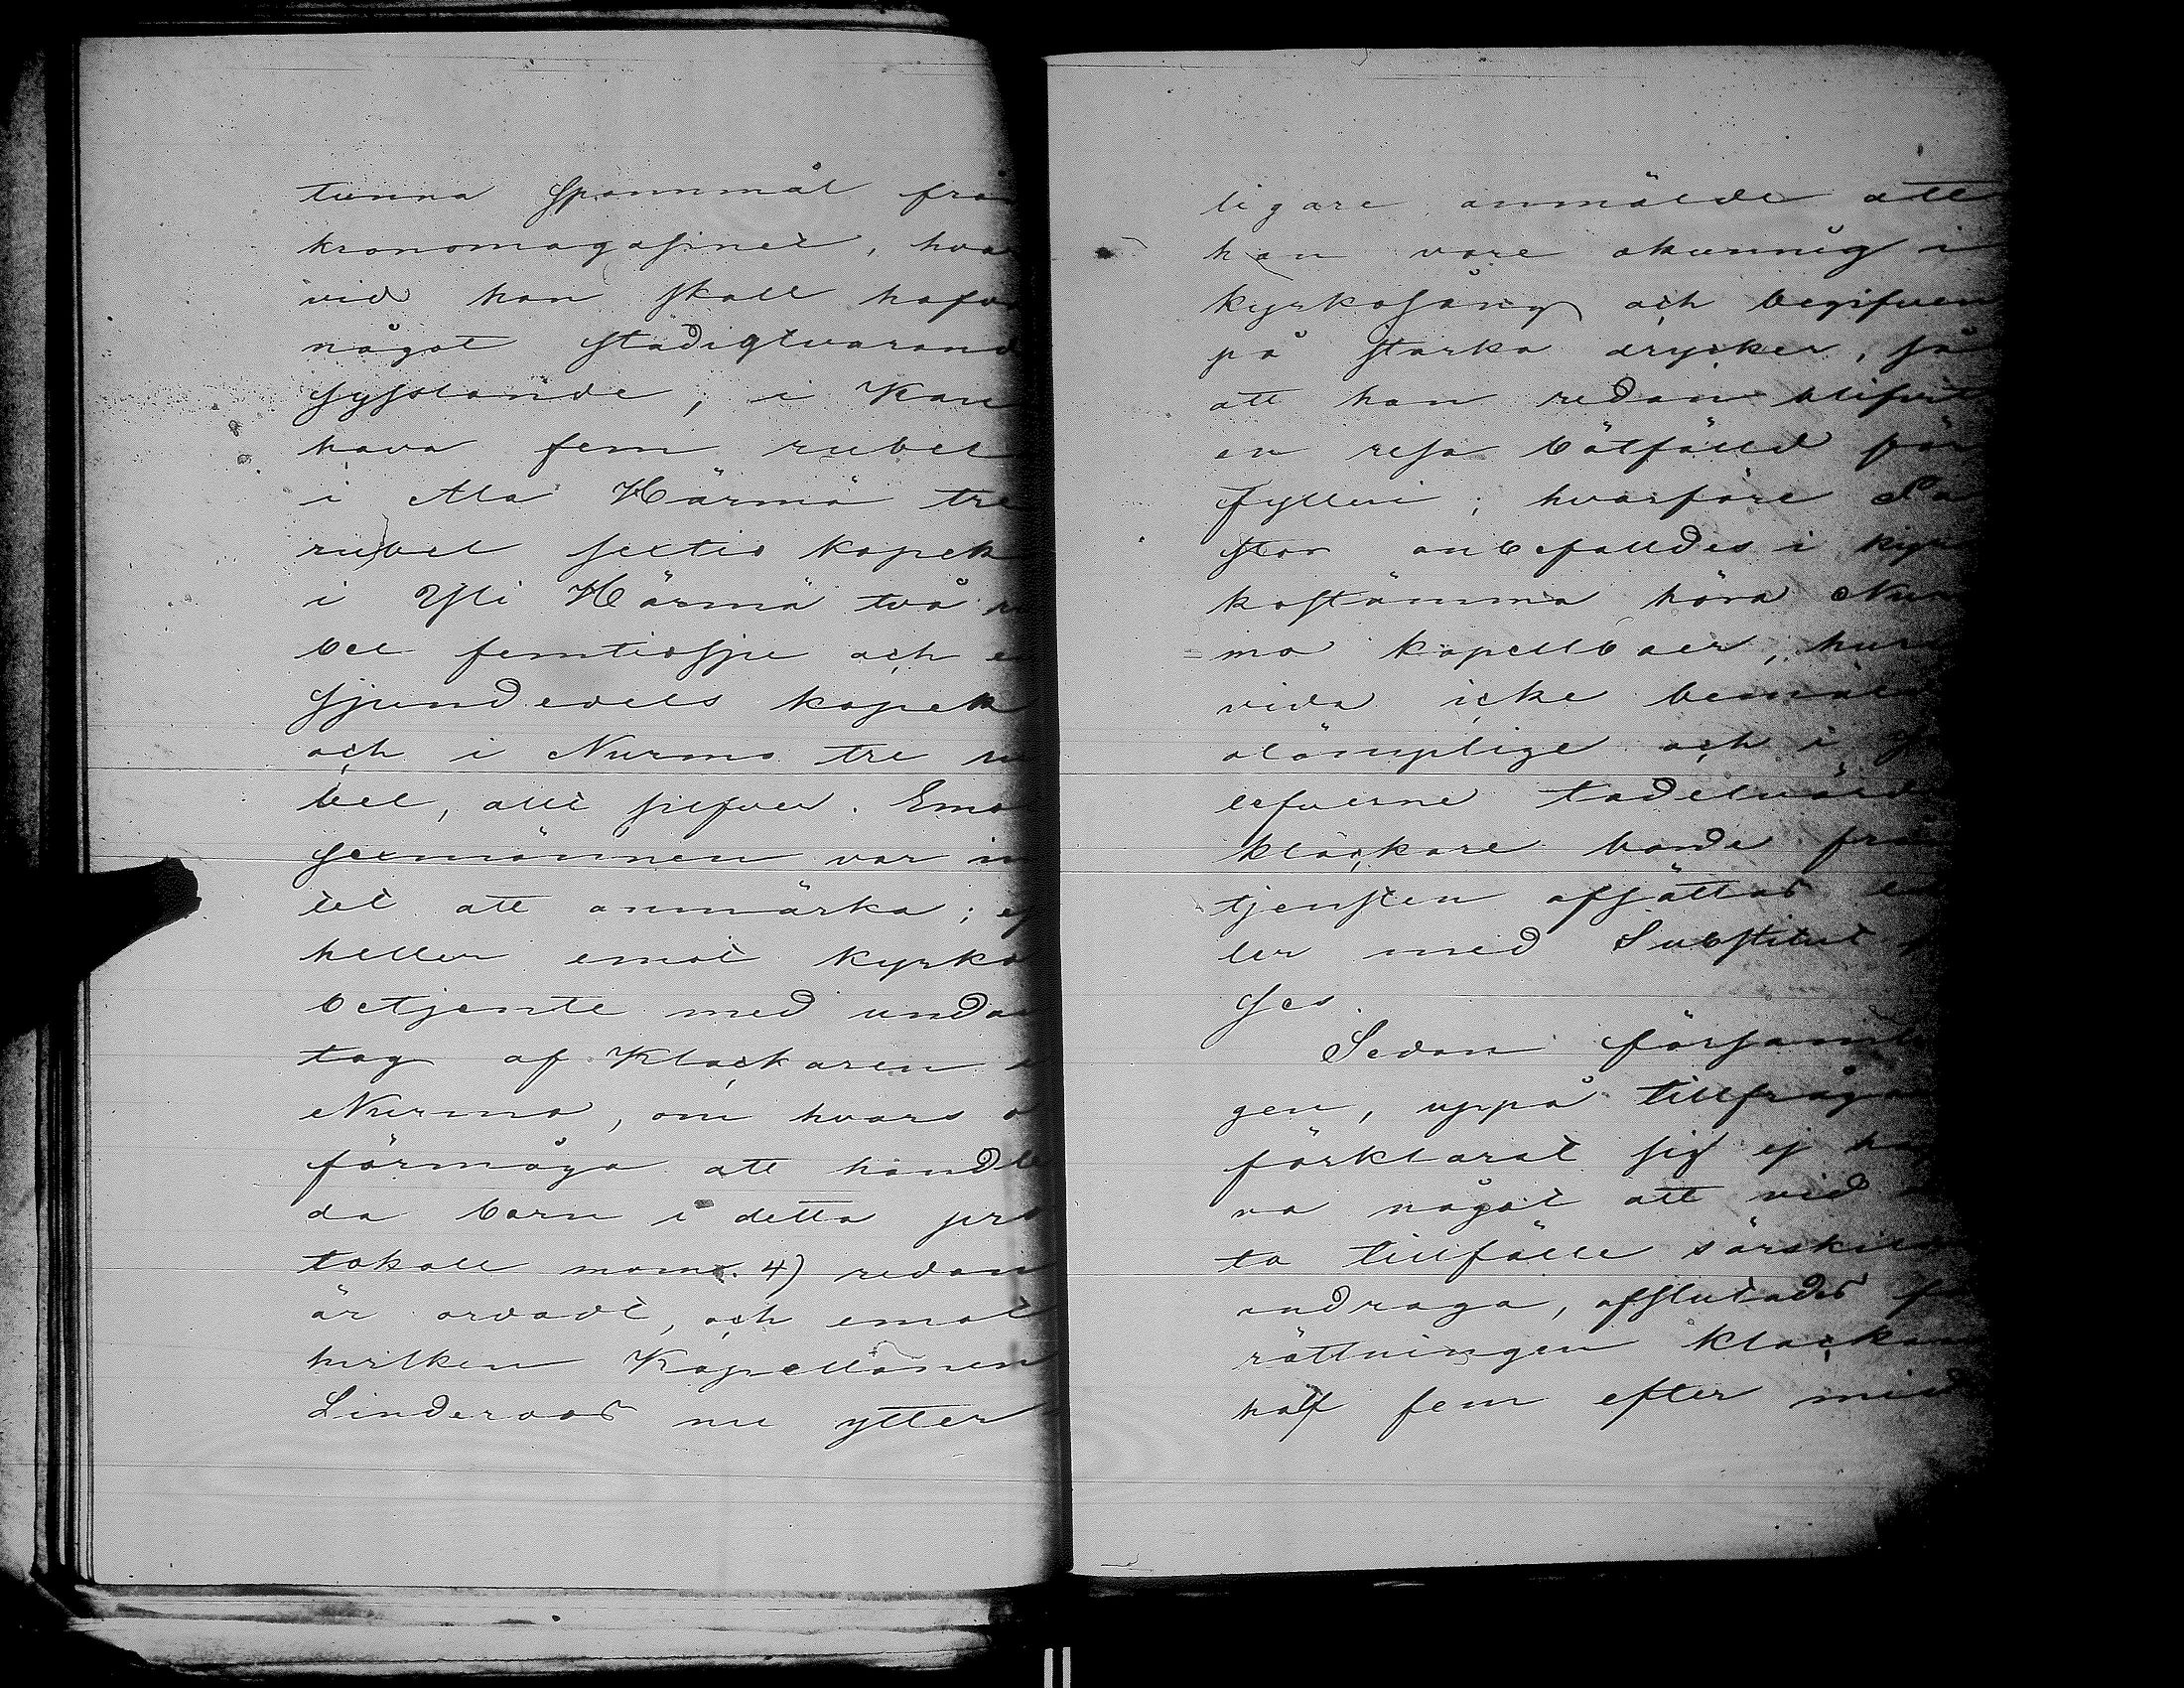 tunna Spannmål från
kronomagasinet, hvar
vid han skall hafva
något städigtvarand
sysslande; i Kau
hava fem rubel
i Ala Härmä tre
rubel sextio kopek
i Ylli Härmä två ru
bel femtiosju och en
sjundedels kopek
och i Nurmo tre ru
bel, allt silfver. Emot
Sexmännen var in
tet att anmärka; ej
heller emot kyrko
betjente med undan
tag af Klockaren i
Nurmo, om hvars o
förmåga att handle
da barn i detta pro
tokoll mom. 4) redan
är ordadt, och emot
hvilken Kapellanen
Linderoos nu ytter
ligare anmälde att
han vore okunnig i
kyrkosång och begifven
på starka drycker, så
att han redan blifvit
en resa bötfälld för
fylleri; hvarföre Pa
stor anbefalldes i kyr
kostämma höra Nur
mo kapellboer, huru
vida icke bemälde
olämplige och i
lefverne tadelvärde
klockare borde från
tjensten afsättas el
ler med Substitut
ses.
Sedan församlin
gen, uppå tillfrågan
förklarat sig ej haf
va något att vid
ta tillfälle särskildt
andraga, afslutades för
rättningen klockan
half fem efter mid